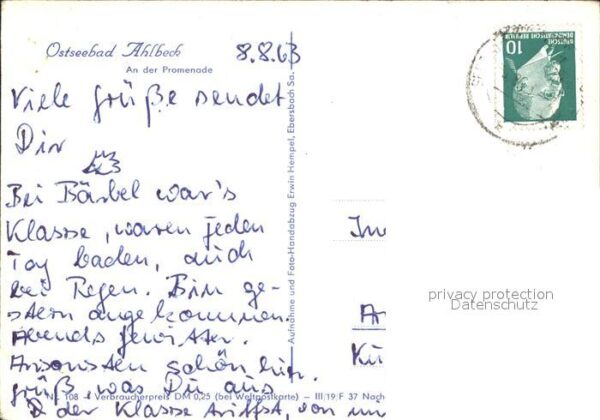 Ostseebad Ahlbeck
An der Promenade
8.8.63
Viele Grüße sendet
Dir
Bei Bärbel war's
Klasse, waren jeden
Tag baden, auch
bei Regen. Bin ge-
stern angekommen.
Abends Gewitter.
Ansonsten schön hier.
grüß was Du aus
der Klasse triffst, von mir
Nr. 108 – Verbraucherpreis DM 0,25 (bei Weltpostkarte) – III/19/F 37 Nach
Aufnahme und Foto-Handabzug Erwin Hempel, Ebersbach Sa.
DEUTSCHE
DEMOKRATISCHE REPUBLIK
10
privacy protection
Datenschutz